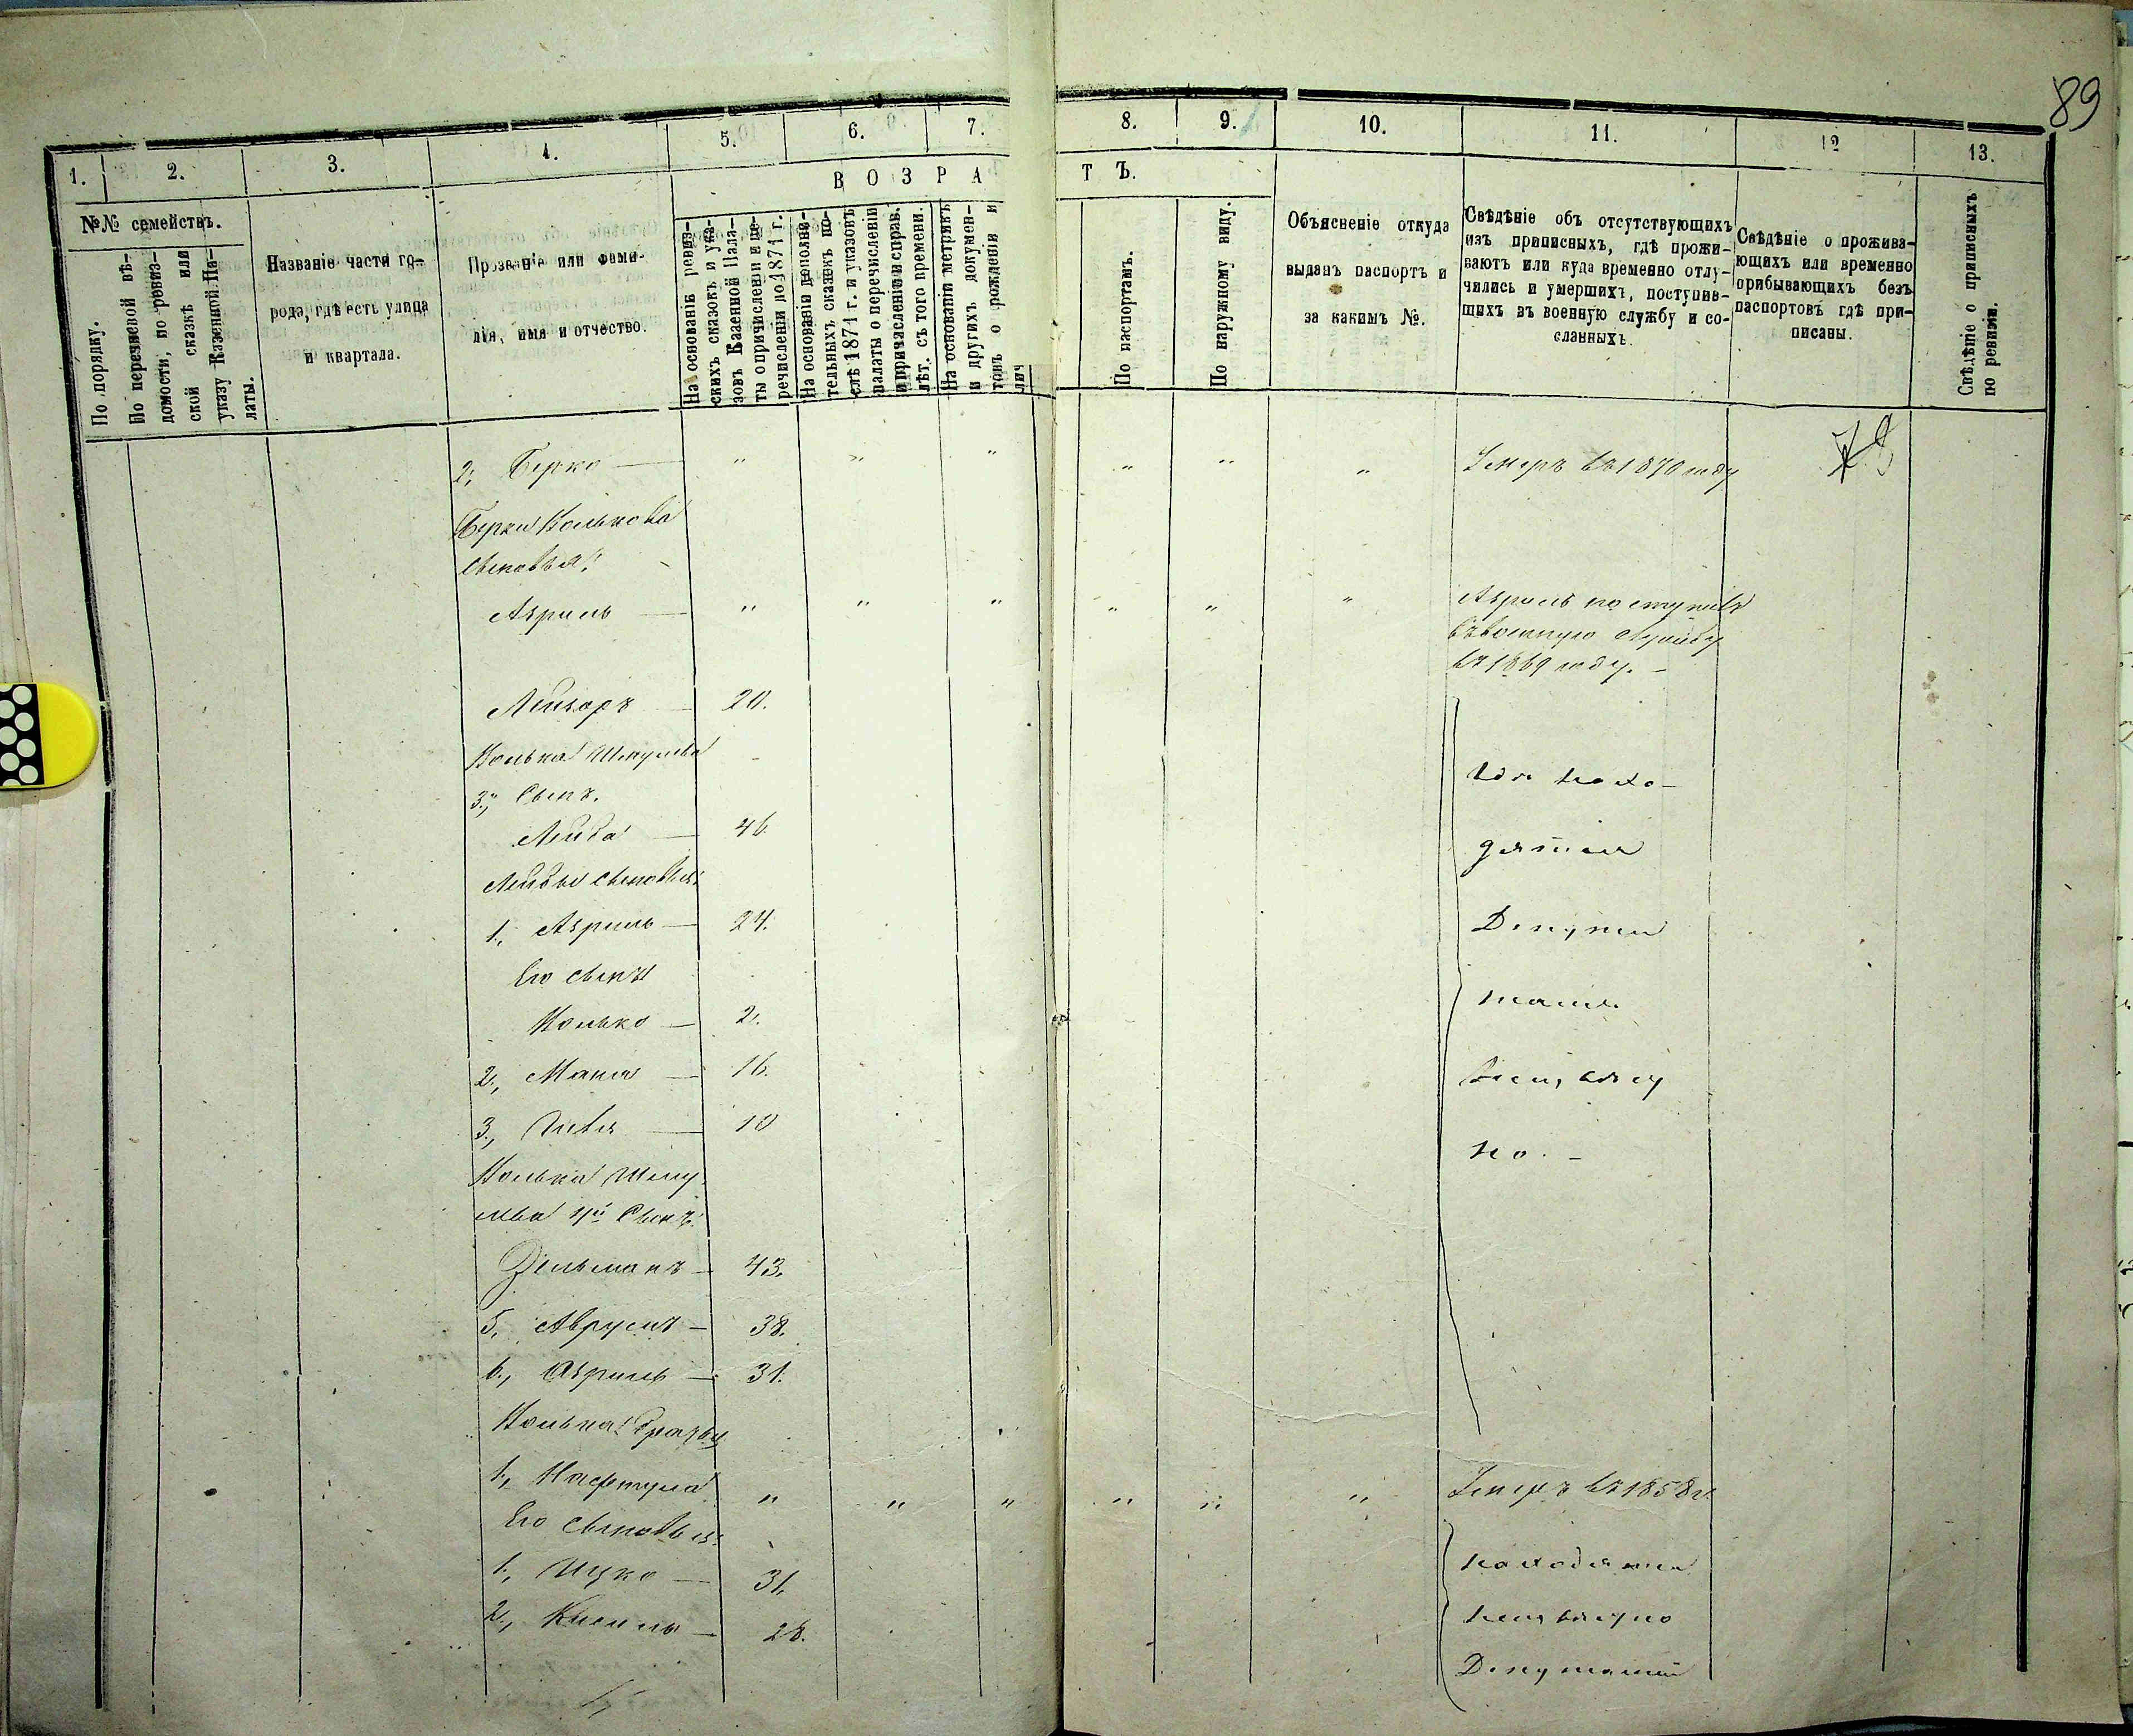 89
1.
2.
3.
4.
5.
6.
7.
8.
9.
10.
11.
12
13.
В О З Р А
Т Ъ.
№№ семействъ.
По порядку.
По перечневой вѣ-
домости, по ревиз-
ской сказкѣ или
указу Казенной Па-
латы.
Названіе части го-
рода, гдѣ есть улица
и квартала.
Прозваніе или фами-
лія, имя и отчество.
На основаніи ревиз-
скихъ сказокъ и ука-
зовъ Казенной Пала-
ты о причисленіи и пе-
речисленіи до 1871 г.
На основаніи дополни-
тельныхъ сказокъ по-
слѣ 1871 г. и указовъ
палаты о перечисленіи
и причисленіи и справ.
лѣт. съ того времени.
На основаніи метрикъ
и другихъ докумен-
товъ о рожденіи и
лич
По паспортамъ.
По наружному виду.
Объясненіе откуда
выданъ паспортъ и
за какимъ №.
Свѣдѣніе объ отсутствующихъ
изъ приписныхъ, гдѣ прожи-
ваютъ или куда временно отлу-
чились и умершихъ, поступив-
шихъ въ военную службу и со-
сланныхъ.
Свѣдѣніе о прожива-
ющихъ или временно
прибывающихъ безъ
паспортовъ гдѣ при-
писаны.
Свѣдѣніе о приписныхъ
по ревизіи.
2, Берко — " " " " " " Умеръ въ 1870 году
Берки Колькова
сыновья:
Азриль — " " " " " " Азриль поступилъ
въ военную службу
въ 1869 году. —
Лейзоръ — 20.
Колька Шмулева
3., Сынъ.
Лейба — 46.
Лейбы сыновья:
1., Азриль — 24.
Его сынъ
Колько — 2.
2., — 16.
3., — 10
Колька Шму-
лева 4й Сынъ:
Зельманъ — 43.
5, Аврумъ — 38.
6., Азриль — 31.
гдѣ нахо-
дятся
Депута
тамъ
неизвѣст
но. —
Колька братья
1., Нафтула " " " " " " Умеръ въ 1858 г.
Его сыновья:
1., Ицко — 31.
2., — 28.
находятся
неизвѣстно